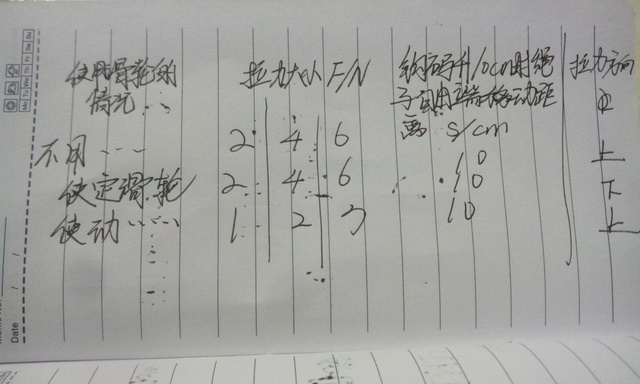 使用滑轮的 拉力大小 F/N 钩码升10cm时绳 拉力方向
情况 子自由端移动距
离 s/cm
不用 2 4 6 10 上
使定滑轮 2 4 6 10 下
使动 1 2 3 10 上
Date / /